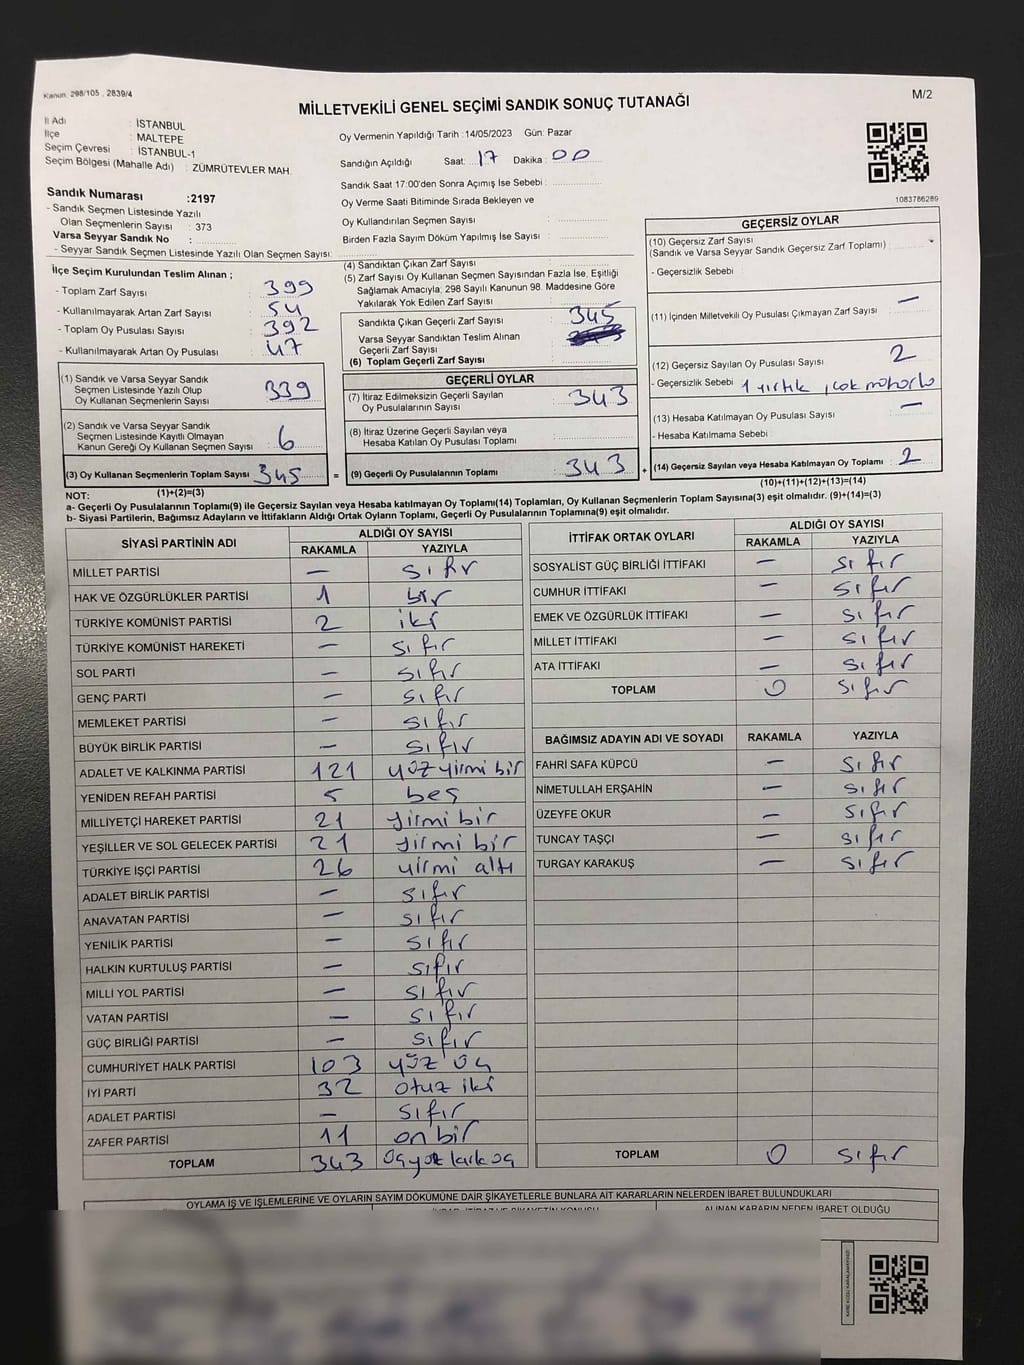 Kanun: 298/105 , 2839/4
M/2
MİLLETVEKİLİ GENEL SEÇİMİ SANDIK SONUÇ TUTANAĞI
İl Adı : İSTANBUL
İlçe : MALTEPE
Seçim Çevresi : İSTANBUL-1
Seçim Bölgesi (Mahalle Adı) : ZÜMRÜTEVLER MAH.
Sandık Numarası :2197
- Sandık Seçmen Listesinde Yazılı
Olan Seçmenlerin Sayısı : 373
Varsa Seyyar Sandık No :
- Seyyar Sandık Seçmen Listesinde Yazılı Olan Seçmen Sayısı:
Oy Vermenin Yapıldığı Tarih :14/05/2023 Gün: Pazar
Sandığın Açıldığı Saat: 17 Dakika: 00
Sandık Saat 17:00'den Sonra Açımış İse Sebebi :
Oy Verme Saati Bitiminde Sırada Bekleyen ve
Oy Kullandırılan Seçmen Sayısı :
Birden Fazla Sayım Döküm Yapılmış İse Sayısı :
1083786289
İlçe Seçim Kurulundan Teslim Alınan ;
- Toplam Zarf Sayısı : 399
- Kullanılmayarak Artan Zarf Sayısı : 54
- Toplam Oy Pusulası Sayısı : 392
- Kullanılmayarak Artan Oy Pusulası : 47
(1) Sandık ve Varsa Seyyar Sandık
Seçmen Listesinde Yazılı Olup
Oy Kullanan Seçmenlerin Sayısı : 339
(2) Sandık ve Varsa Seyyar Sandık
Seçmen Listesinde Kayıtlı Olmayan
Kanun Gereği Oy Kullanan Seçmen Sayısı : 6
(3) Oy Kullanan Seçmenlerin Toplam Sayısı : 345
(4) Sandıktan Çıkan Zarf Sayısı :
(5) Zarf Sayısı Oy Kullanan Seçmen Sayısından Fazla İse, Eşitliği
Sağlamak Amacıyla; 298 Sayılı Kanunun 98. Maddesine Göre
Yakılarak Yok Edilen Zarf Sayısı :
Sandıkta Çıkan Geçerli Zarf Sayısı : 345
Varsa Seyyar Sandıktan Teslim Alınan
Geçerli Zarf Sayısı :
(6) Toplam Geçerli Zarf Sayısı :
GEÇERLİ OYLAR
(7) İtiraz Edilmeksizin Geçerli Sayılan
Oy Pusulalarının Sayısı : 343
(8) İtiraz Üzerine Geçerli Sayılan veya
Hesaba Katılan Oy Pusulası Toplamı :
= (9) Geçerli Oy Pusulalarının Toplamı : 343
GEÇERSİZ OYLAR
(10) Geçersiz Zarf Sayısı
(Sandık ve Varsa Seyyar Sandık Geçersiz Zarf Toplamı) :
- Geçersizlik Sebebi
(11) İçinden Milletvekili Oy Pusulası Çıkmayan Zarf Sayısı : —
(12) Geçersiz Sayılan Oy Pusulası Sayısı : 2
- Geçersizlik Sebebi 1 yırtık , çok mühürlü
(13) Hesaba Katılmayan Oy Pusulası Sayısı : —
- Hesaba Katılmama Sebebi
+ (14) Geçersiz Sayılan veya Hesaba Katılmayan Oy Toplamı : 2
NOT: (1)+(2)=(3)
(10)+(11)+(12)+(13)=(14)
a- Geçerli Oy Pusulalarının Toplamı(9) ile Geçersiz Sayılan veya Hesaba katılmayan Oy Toplamı(14) Toplamları, Oy Kullanan Seçmenlerin Toplam Sayısına(3) eşit olmalıdır. (9)+(14)=(3)
b- Siyasi Partilerin, Bağımsız Adayların ve İttifakların Aldığı Ortak Oyların Toplamı, Geçerli Oy Pusulalarının Toplamına(9) eşit olmalıdır.
SİYASİ PARTİNİN ADI ALDIĞI OY SAYISI
RAKAMLA YAZIYLA
MİLLET PARTİSİ — sıfır
HAK VE ÖZGÜRLÜKLER PARTİSİ 1 bir
TÜRKİYE KOMÜNİST PARTİSİ 2 iki
TÜRKİYE KOMÜNİST HAREKETİ — sıfır
SOL PARTİ — sıfır
GENÇ PARTİ — sıfır
MEMLEKET PARTİSİ — sıfır
BÜYÜK BİRLİK PARTİSİ — sıfır
ADALET VE KALKINMA PARTİSİ 121 yüz yirmi bir
YENİDEN REFAH PARTİSİ 5 beş
MİLLİYETÇİ HAREKET PARTİSİ 21 yirmi bir
YEŞİLLER VE SOL GELECEK PARTİSİ 21 yirmi bir
TÜRKİYE İŞÇİ PARTİSİ 26 yirmi altı
ADALET BİRLİK PARTİSİ — sıfır
ANAVATAN PARTİSİ — sıfır
YENİLİK PARTİSİ — sıfır
HALKIN KURTULUŞ PARTİSİ — sıfır
MİLLİ YOL PARTİSİ — sıfır
VATAN PARTİSİ — sıfır
GÜÇ BİRLİĞİ PARTİSİ — sıfır
CUMHURİYET HALK PARTİSİ 103 yüz üç
İYİ PARTİ 32 otuz iki
ADALET PARTİSİ — sıfır
ZAFER PARTİSİ 11 on bir
TOPLAM 343 üçyüz kırk üç
İTTİFAK ORTAK OYLARI ALDIĞI OY SAYISI
RAKAMLA YAZIYLA
SOSYALİST GÜÇ BİRLİĞİ İTTİFAKI — sıfır
CUMHUR İTTİFAKI — sıfır
EMEK VE ÖZGÜRLÜK İTTİFAKI — sıfır
MİLLET İTTİFAKI — sıfır
ATA İTTİFAKI — sıfır
TOPLAM 0 sıfır
BAĞIMSIZ ADAYIN ADI VE SOYADI RAKAMLA YAZIYLA
FAHRİ SAFA KÜPCÜ — sıfır
NİMETULLAH ERŞAHİN — sıfır
ÜZEYFE OKUR — sıfır
TUNCAY TAŞÇI — sıfır
TURGAY KARAKUŞ — sıfır
TOPLAM 0 sıfır
OYLAMA İŞ VE İŞLEMLERİNE VE OYLARIN SAYIM DÖKÜMÜNE DAİR ŞİKAYETLERLE BUNLARA AİT KARARLARIN NELERDEN İBARET BULUNDUKLARI
ALINAN KARARIN NEDEN İBARET OLDUĞU